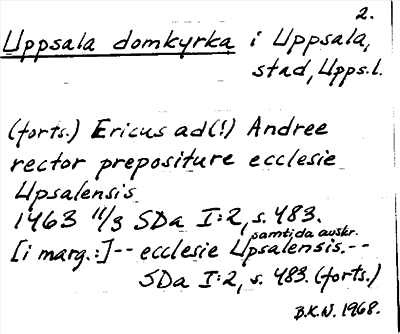 2.
Uppsala domkyrka i Uppsala,
stad, Upps.l.
(forts.) Ericus ad(!) Andree
rector prepositure ecclesie
Upsalensis
1463 11/3 SDa I:2, s. 483.
samtida auskr.
[i marg.:]-- ecclesie Upsalensis.--
SDa I:2, s. 483. (forts.)
B.K.N. 1968.